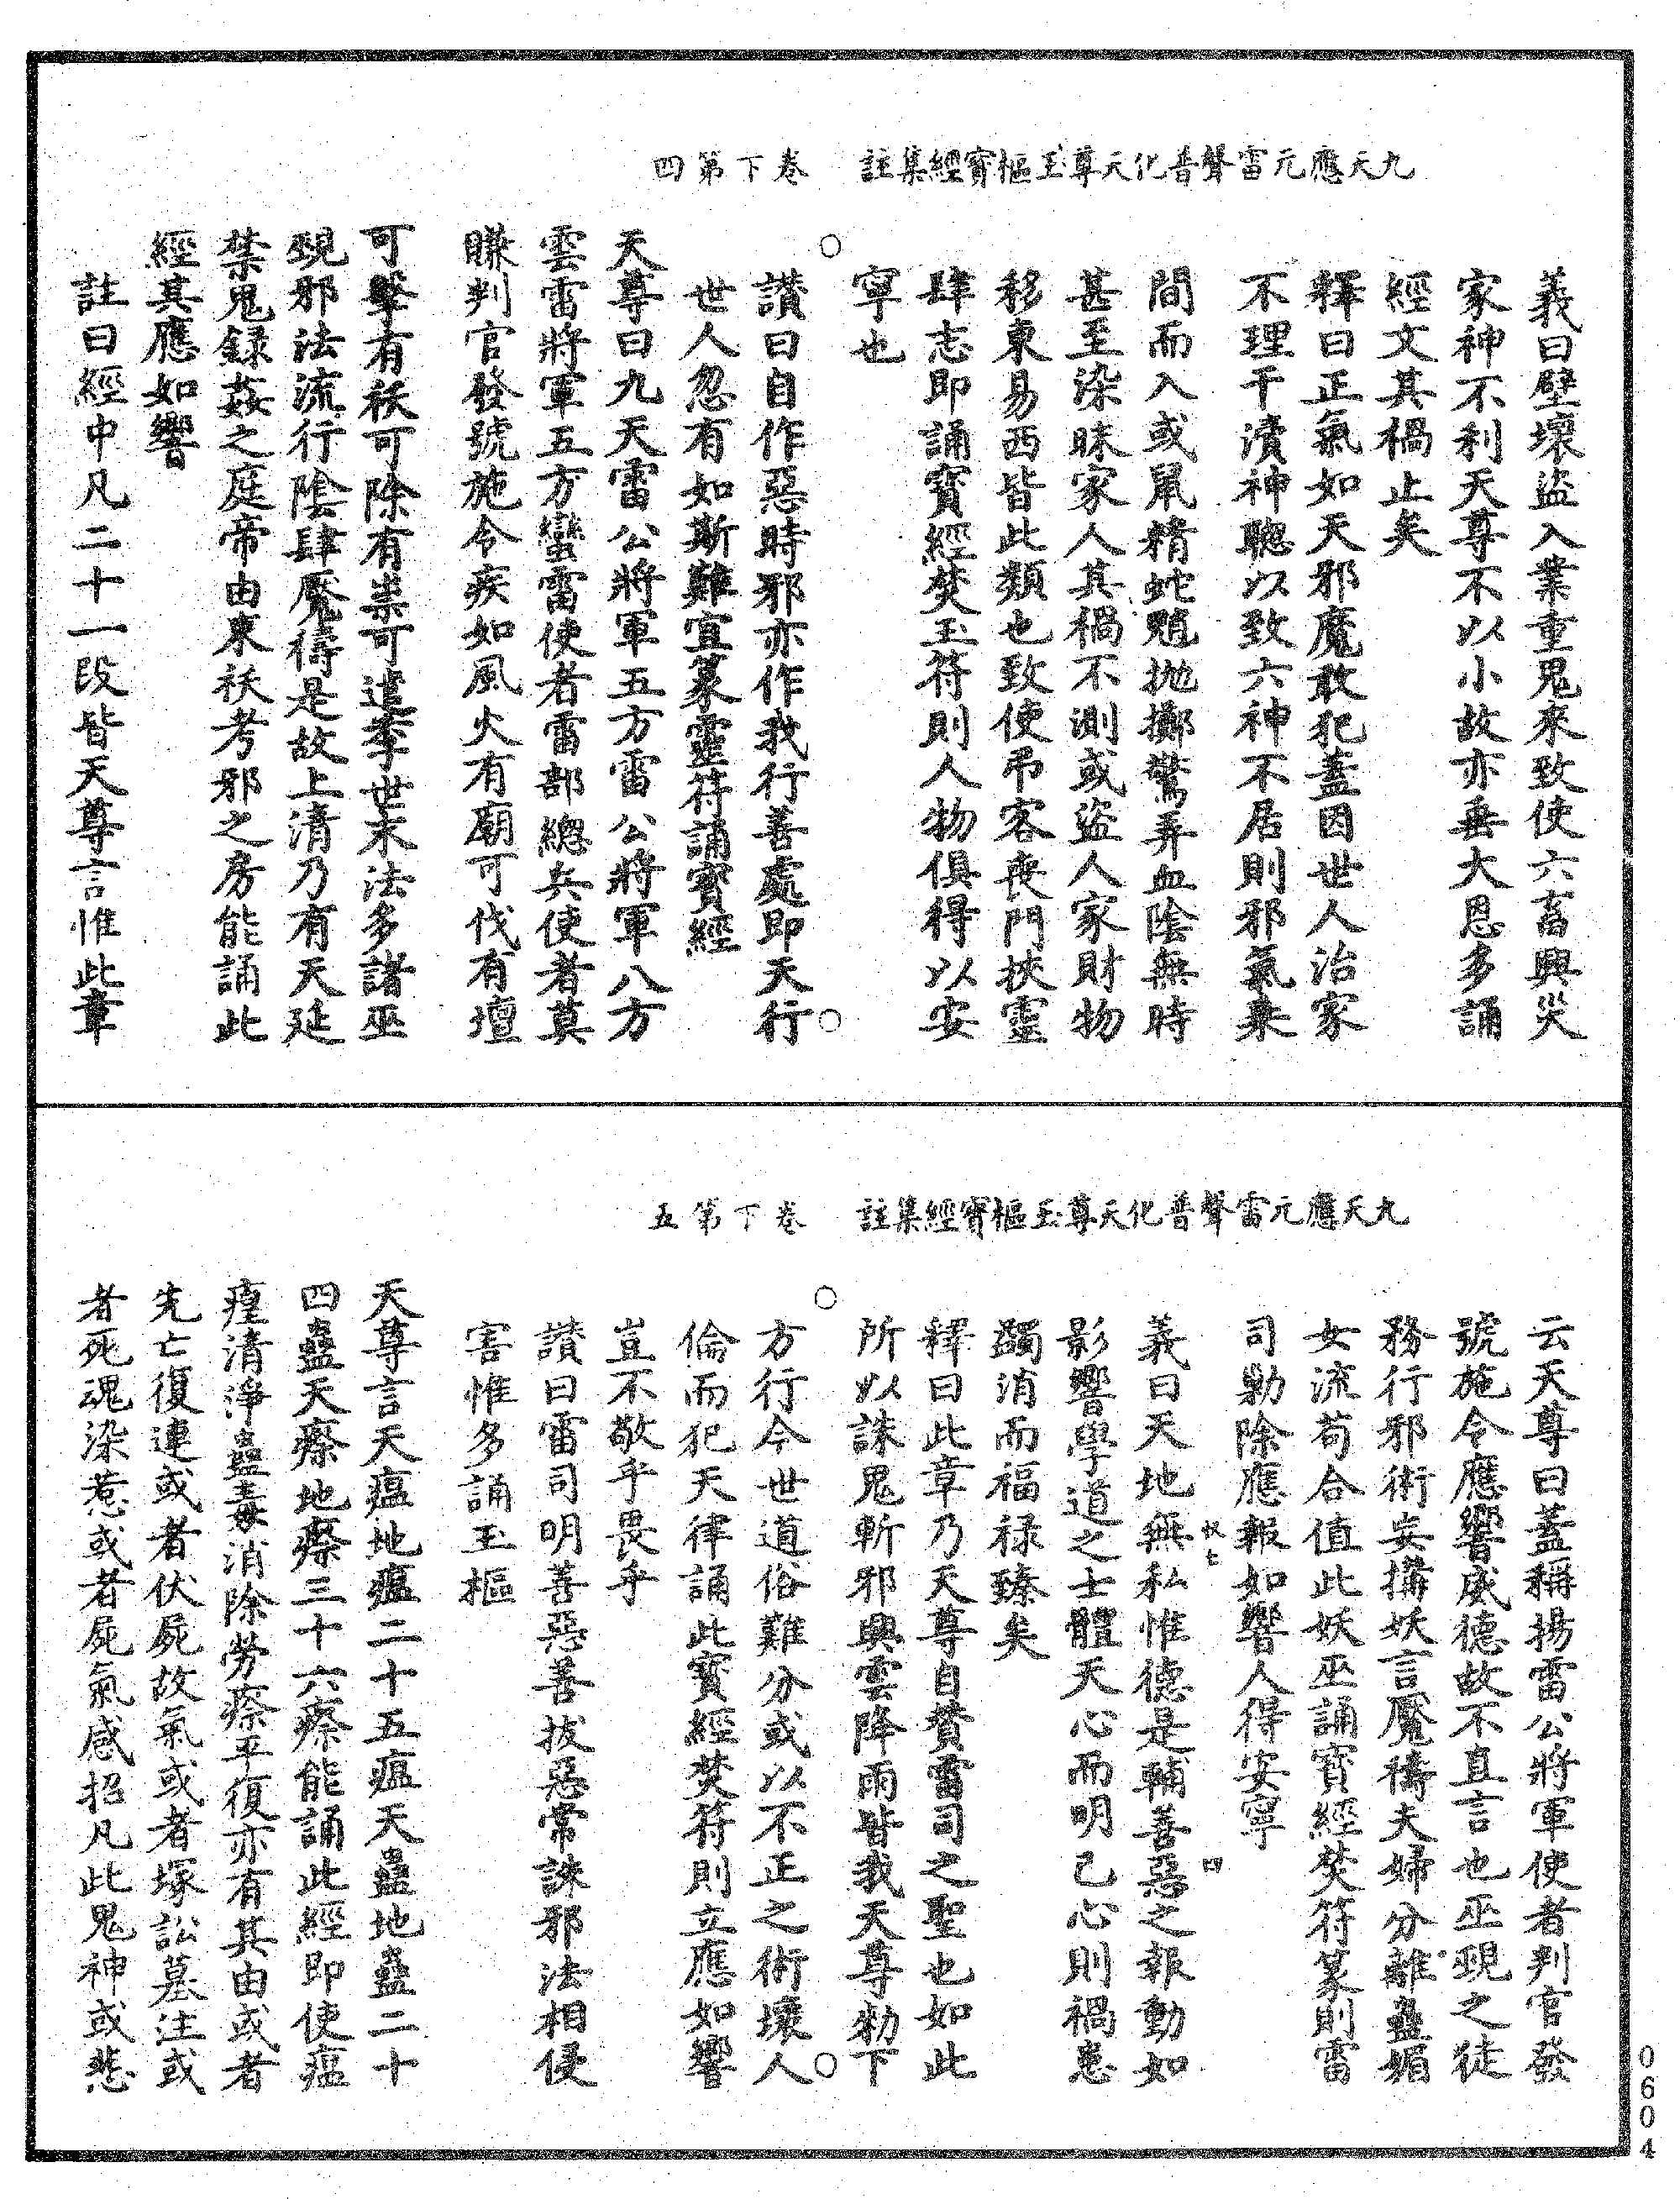 九天應元雷聲普化天尊玉樞寶經集註　卷下第四
義曰壁壞盜入業重鬼來致使六畜興災
家神不利天尊不以小故亦垂大恩多誦
經文其禍止矣
釋曰正氣如天邪魔敢犯蓋因世人治家
不理干瀆神聰以致六神不居則邪氣乘
間而入或鼠精蛇魈拋擲驚弄血陰無時
甚至染昧家人其禍不測或盜人家財物
移東易西皆此類也致使吊客喪門挾靈
肆志即誦寶經焚玉符則人物俱得以安
寧也
讚曰自作惡時邪亦作我行善處即天行
世人忽有如斯難宜篆靈符誦寶經
天尊曰九天雷公將軍五方雷公將軍八方
雲雷將軍五方蠻雷使者雷部總兵使者莫
賺判官發號施令疾如風火有廟可伐有壇
可擊有祅可除有祟可遣季世末法多諸巫
覡邪法流行陰肆魘禱是故上清乃有天延
禁鬼錄姦之庭帝由東祅考邪之房能誦此
經其應如響
註曰經中凡二十一段皆天尊言惟此章
九天應元雷聲普化天尊玉樞寶經集註　卷下第五
云天尊曰蓋稱揚雷公將軍使者判官發
號施令應響威德故不直言也巫覡之徒
務行邪術妄搆妖言魘禱夫婦分離蠱媚
女流苟合值此妖巫誦寶經焚符篆則雷
司勦除應報如響人得安寧
義曰天地無私惟德是輔善惡之報動如
影響學道之士體天心而明己心則禍患
蠲消而福祿臻矣
釋曰此章乃天尊自贊雷司之聖也如此
所以誅鬼斬邪興雲降雨皆我天尊勑下
方行今世道俗難分或以不正之術壞人
倫而犯天律誦此寶經焚符則立應如響
豈不敬乎畏乎
讚曰雷司明善惡善拔惡常誅邪法相侵
害惟多誦玉樞
天尊言天瘟地瘟二十五瘟天蠱地蠱二十
四蠱天瘵地瘵三十六瘵能誦此經即使瘟
㾮清淨蠱毒消除勞瘵平復亦有其由或者
先亡復連或者伏屍故氣或者塚訟墓注或
者死魂染惹或者屍氣感招凡此鬼神或悲
四
0604